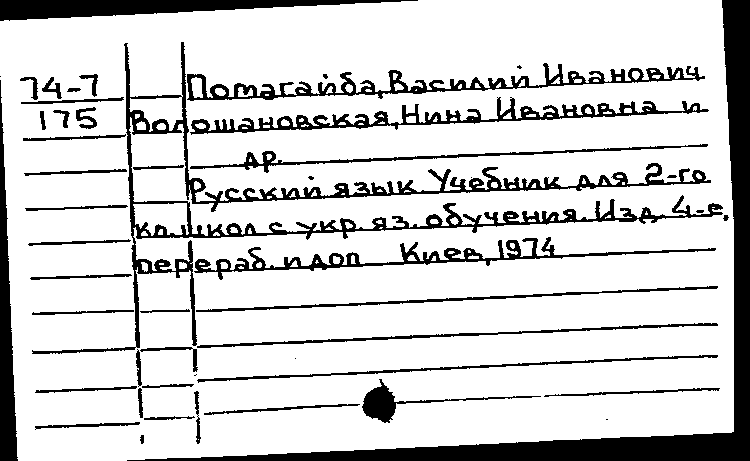 74-7 Помагайба, Василий Иванович
175 Волошановская, Нина Ивановна и
др.
Русский язык Учебник для 2-го
кл. школ с укр. яз. обучения. Изд. 4-е,
перераб. и доп Киев, 1974